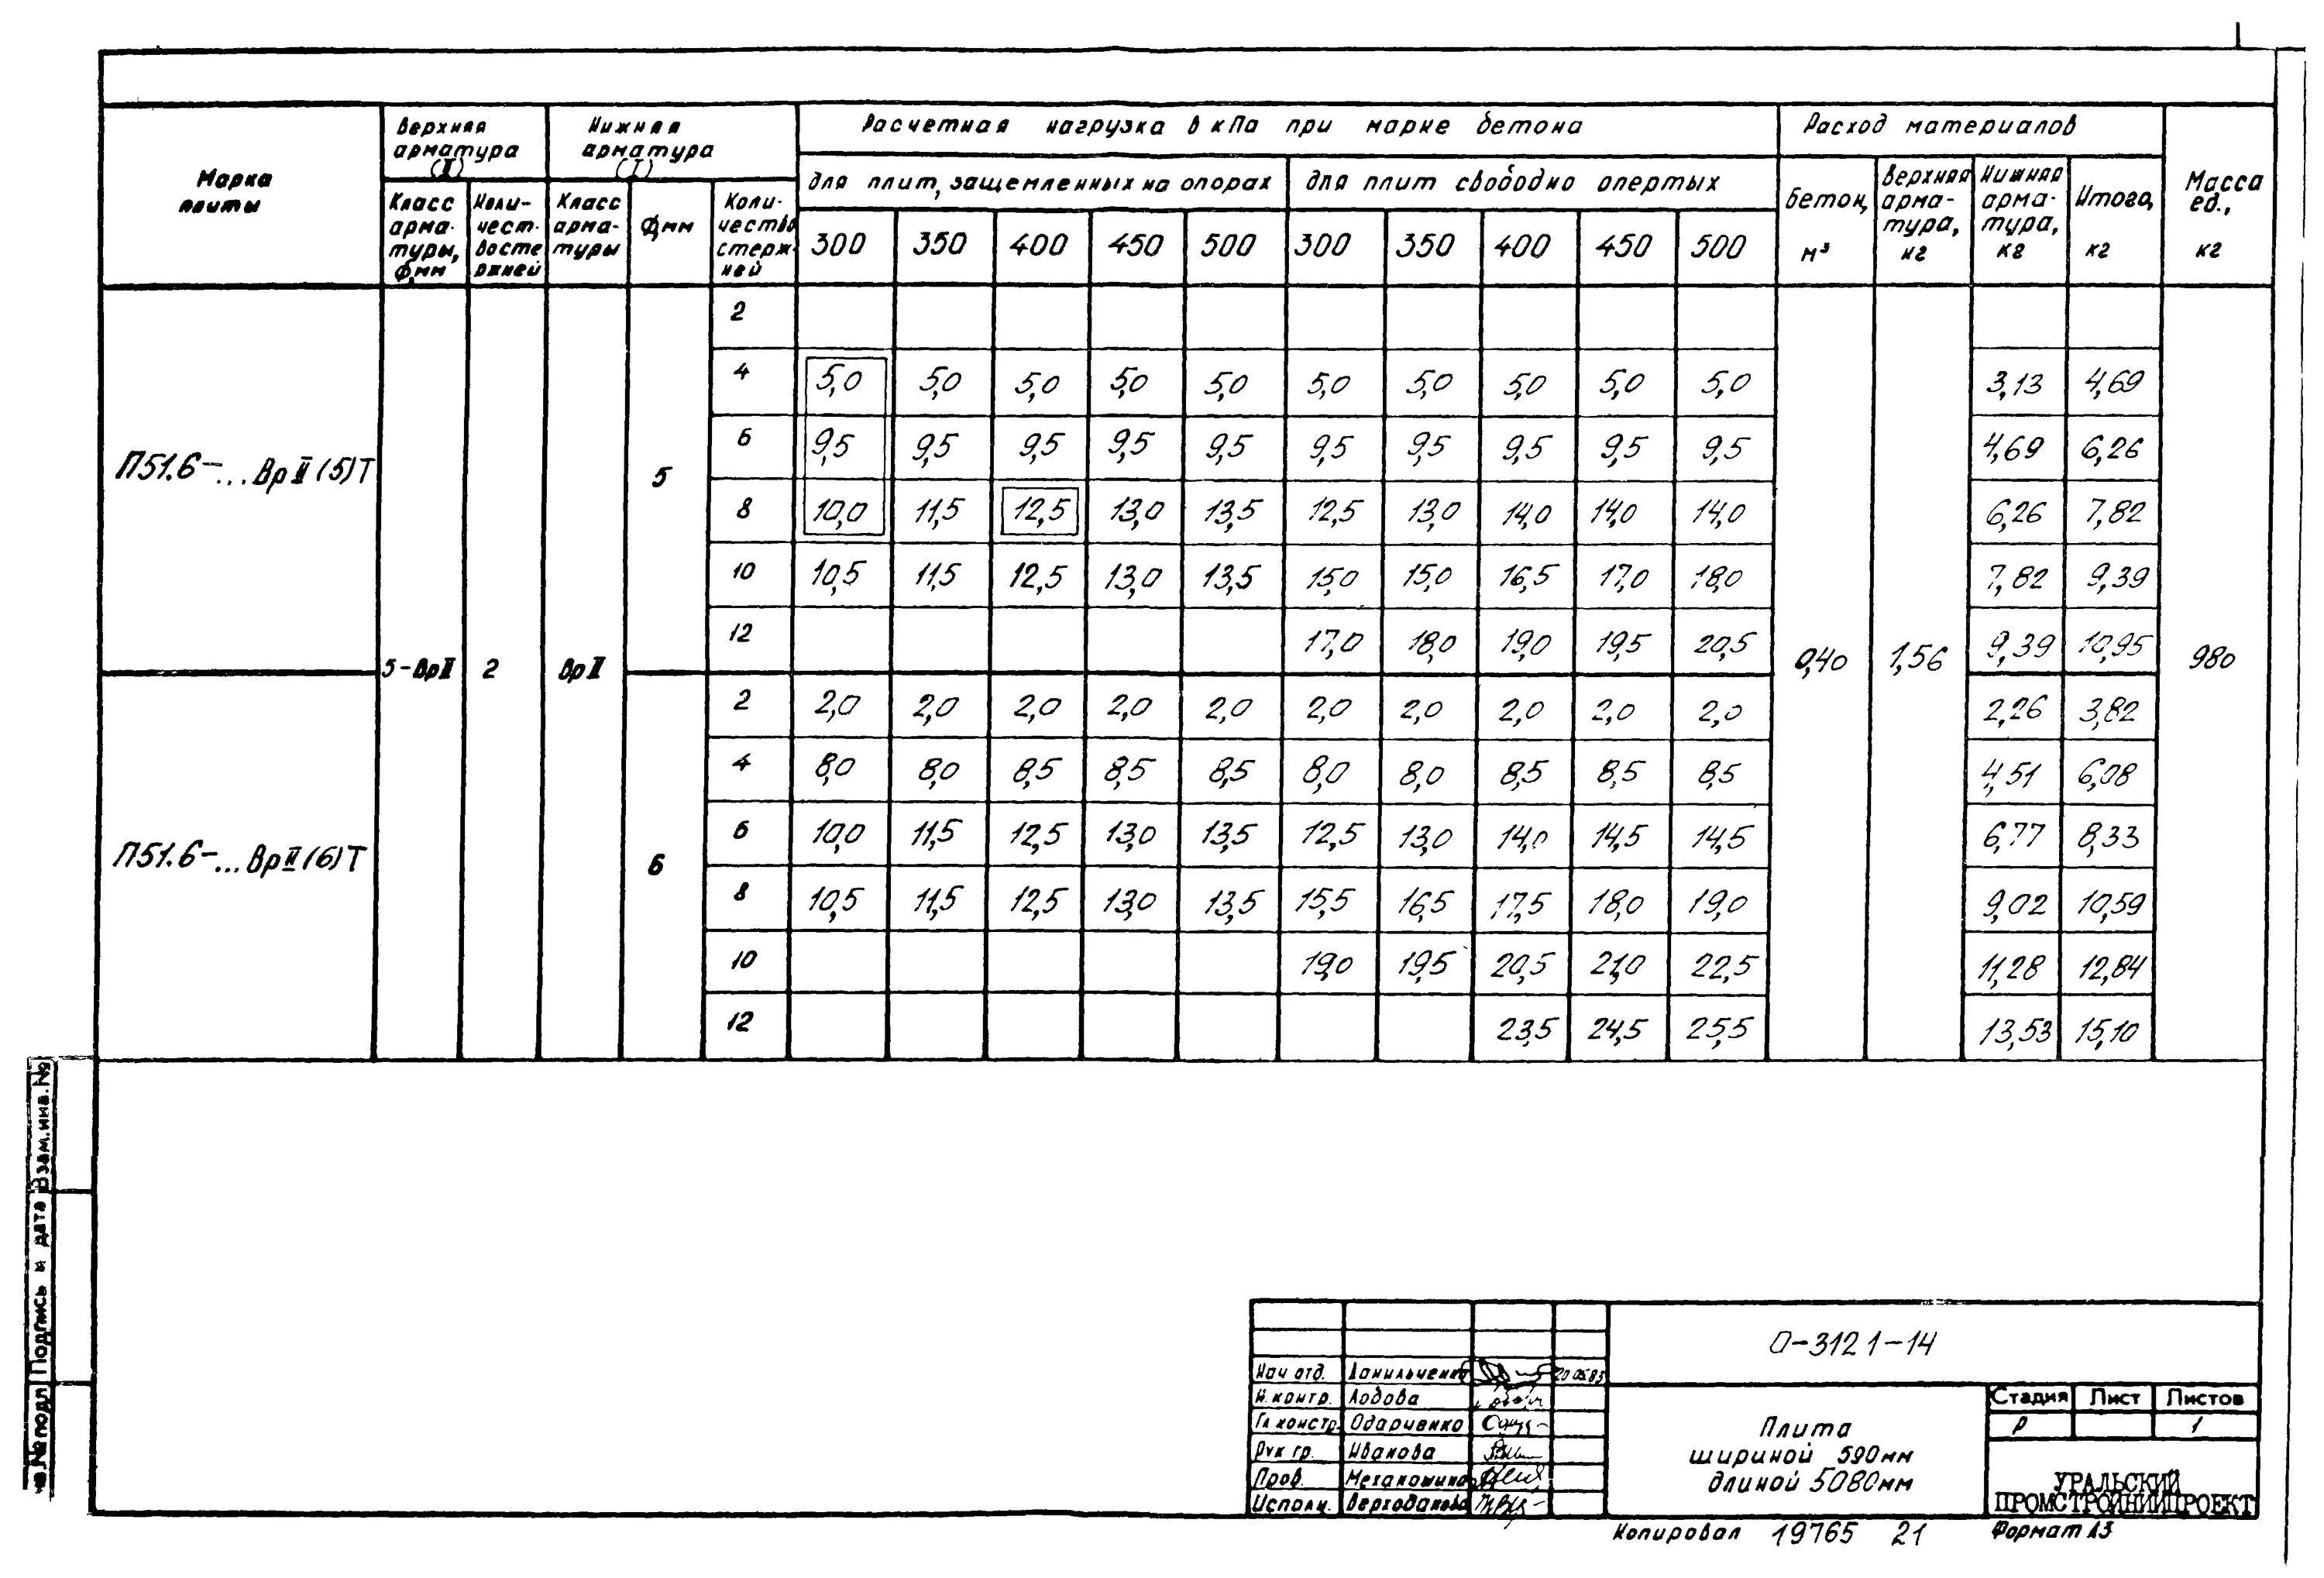 Марка плиты
Верхняя арматура (II)
Нижняя арматура (I)
Расчетная нагрузка в кПа при марке бетона
Расход материалов
Масса ед., кг
для плит, защемленных на опорах
для плит свободно опертых
Класс арма-туры, Ф,мм
Коли-чест-во стержней
Класс арма-туры
Ф,мм
Коли-чество стерж-ней
300 350 400 450 500 300 350 400 450 500
Бетон, м³
Верхняя арма-тура, кг
Нижняя арма-тура, кг
Итого, кг
П51.6-...ВрII(5)Т
5-ВрII 2 ВрII 5
2
4 5,0 5,0 5,0 5,0 5,0 5,0 5,0 5,0 5,0 5,0 3,13 4,69
6 9,5 9,5 9,5 9,5 9,5 9,5 9,5 9,5 9,5 9,5 4,69 6,26
8 10,0 11,5 12,5 13,0 13,5 12,5 13,0 14,0 14,0 14,0 6,26 7,82
10 10,5 11,5 12,5 13,0 13,5 15,0 15,0 16,5 17,0 18,0 7,82 9,39
12 17,0 18,0 19,0 19,5 20,5 0,40 1,56 9,39 10,95 980
П51.6-...ВрII(6)Т
6
2 2,0 2,0 2,0 2,0 2,0 2,0 2,0 2,0 2,0 2,0 2,26 3,82
4 8,0 8,0 8,5 8,5 8,5 8,0 8,0 8,5 8,5 8,5 4,51 6,08
6 10,0 11,5 12,5 13,0 13,5 12,5 13,0 14,0 14,5 14,5 6,77 8,33
8 10,5 11,5 12,5 13,0 13,5 15,5 16,5 17,5 18,0 19,0 9,02 10,59
10 19,0 19,5 20,5 21,0 22,5 11,28 12,84
12 23,5 24,5 25,5 13,53 15,10
Взам.инв.№
Подпись и дата
№ подл
О-312 1-14
Нач отд. Данильченко
Н. контр. Лодова
Гл констр. Одарченко
Рук гр. Иванова
Пров.
Исполн.
Плита
шириной 590мм
длиной 5080мм
Стадия Лист Листов
Р 1
УРАЛЬСКИЙ
ПРОМСТРОЙНИИПРОЕКТ
Копировал 19765 21 Формат А3